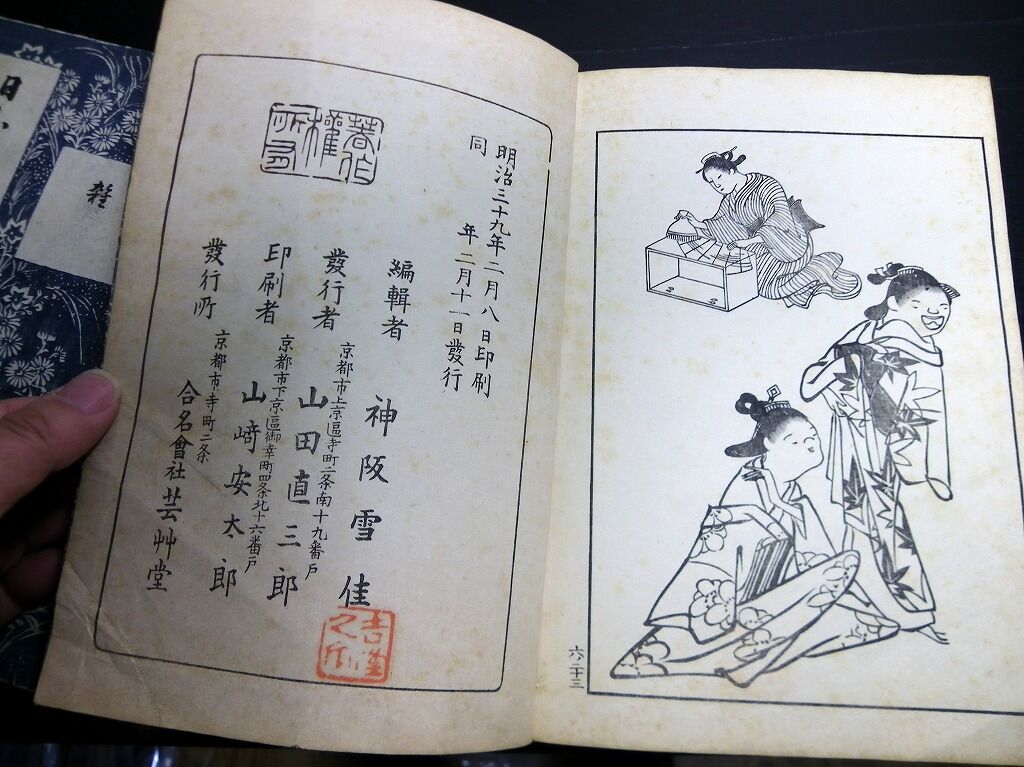 六ノ二十三
明治三十九年二月八日印刷
同年二月十一日發行
編輯者
神阪雪佳
發行者
京都市上京區寺町二条南十九番戶
山田直三郎
印刷者
京都市下京區御幸町四条北十六番戶
山﨑安太郎
發行所
京都市寺町二条
合名會社芸艸堂
著作權所有